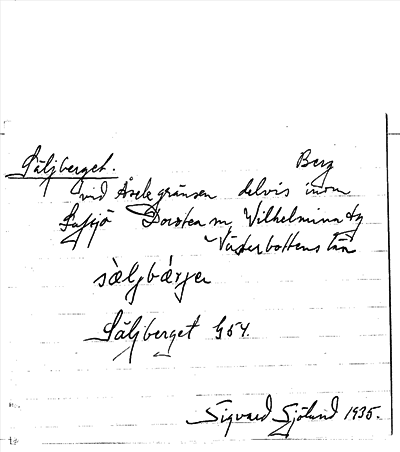 Säljberget. Berg
vid Åsele gränsen delvis inom
Dorotea m, Vilhelmina
Västerbottens län
sæljbærjer
Säljberget G54.
Sigvard Sjölund 1935.